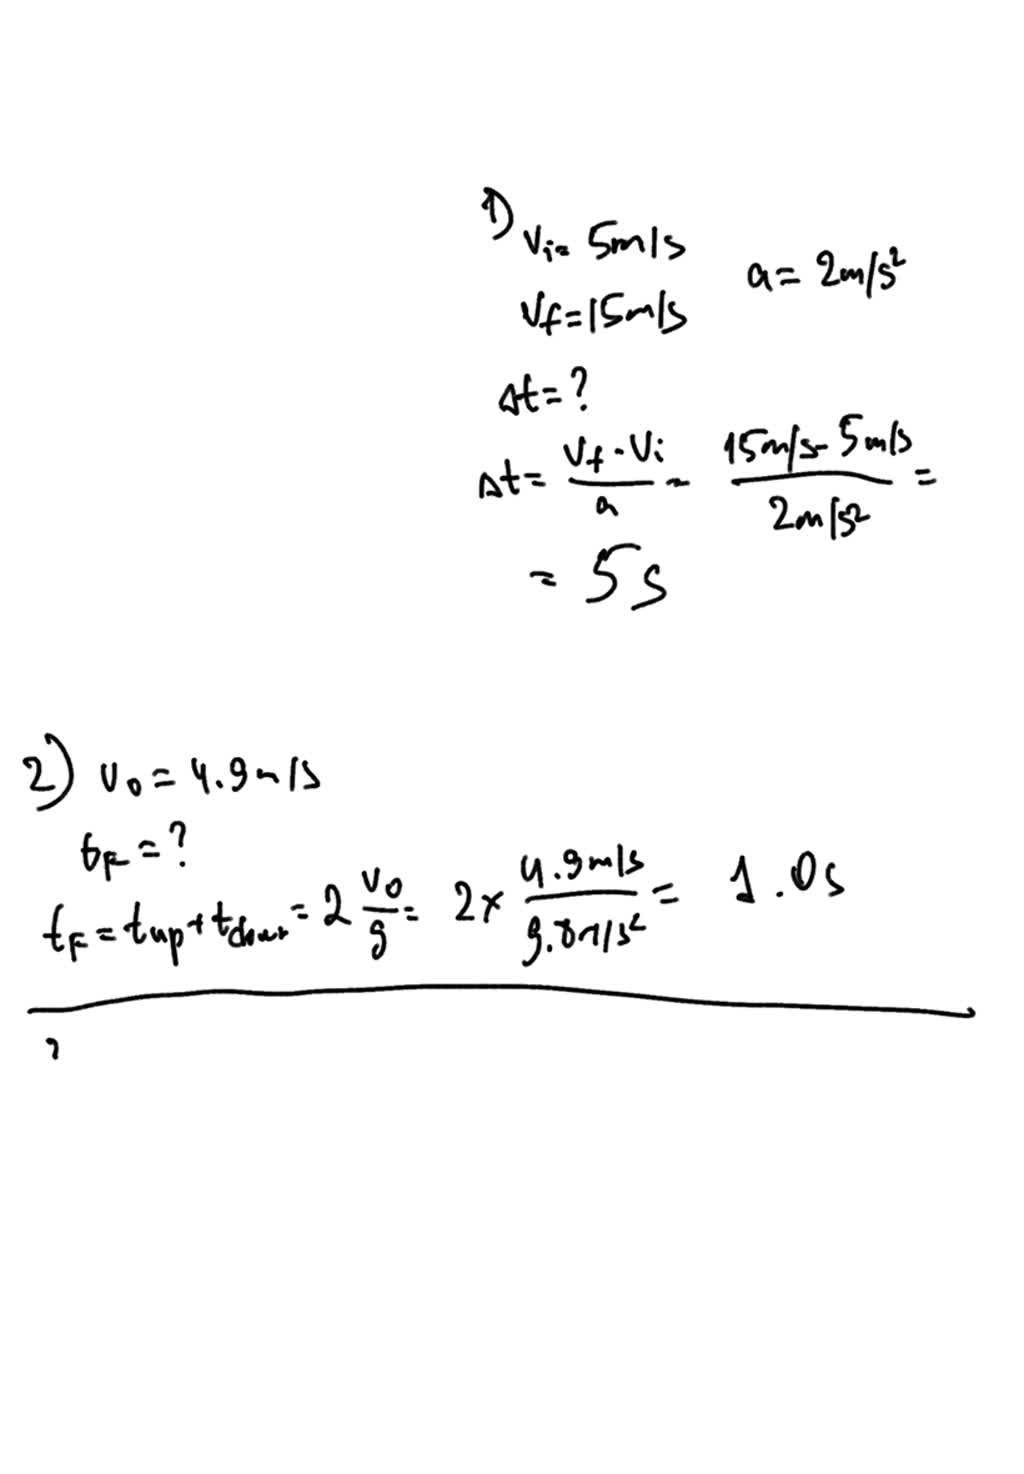 1)
Vi= 5m/s
a= 2m/s²
Vf=15m/s
Δt=?
Δt= (Vf-Vi)/a = (15m/s-5m/s)/(2m/s²) =
= 5s
2) v₀ = 4.9m/s
tF = ?
tF = tup+tdown = 2 v₀/g = 2× (4.9m/s)/(9.8m/s²) = 1.0s